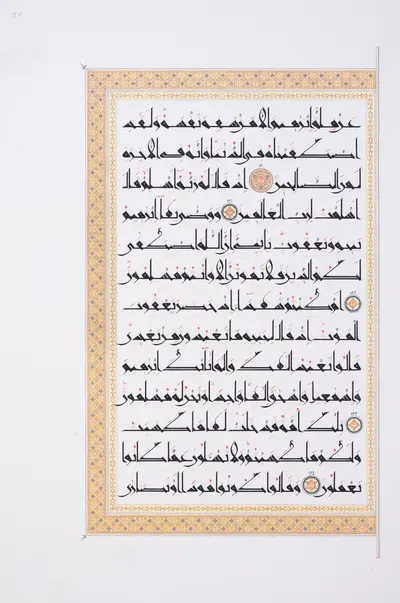 عن ملة إبرهيم إلا من سفه نفسه ولقد
اصطفينه في الدنيا وإنه في الآخرة
لمن الصالحين إذ قال له ربه أسلم قال
أسلمت لرب العالمين ووصى بها إبرهيم
بنيه ويعقوب يا بني إن الله اصطفى
لكم الدين فلا تموتن إلا وأنتم مسلمون
أم كنتم شهداء إذ حضر يعقوب
الموت إذ قال لبنيه ما تعبدون من بعدي
قالوا نعبد إلهك وإله آبائك إبرهيم
وإسمعيل وإسحق إلها واحدا ونحن له مسلمون
تلك أمة قد خلت لها ما كسبت
ولكم ما كسبتم ولا تسئلون عما كانوا
يعملون وقالوا كونوا هودا أو نصارى